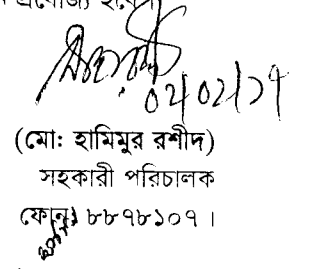 প্রযোজ্য হবে।
০২/০২/১৭
(মো: হামিমুর রশীদ)
সহকারী পরিচালক
ফোন: ৮৮৭৮১০৭ ।